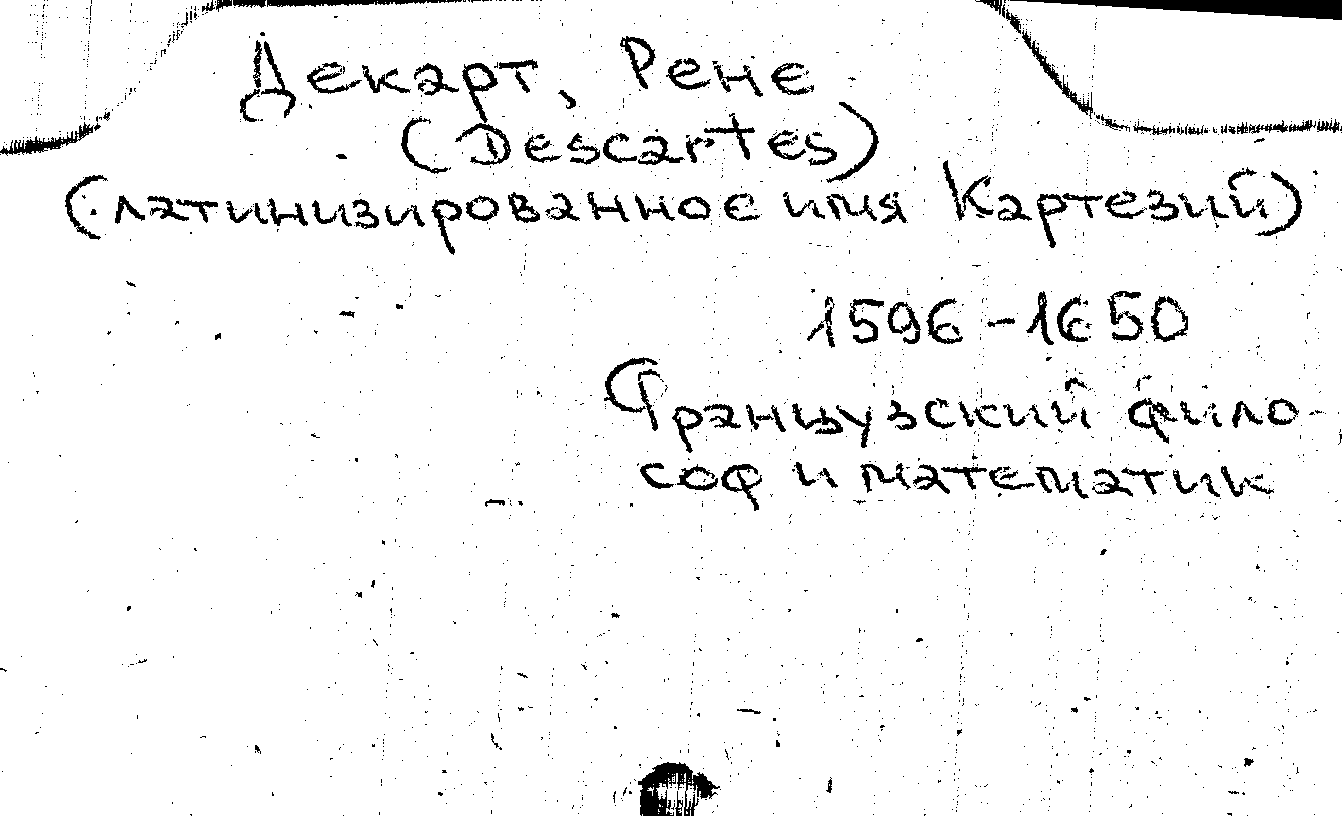 Декарт, Рене
(Descartes)
(латинизированное имя Картезий)
1596-1650
Французский фило-
соф и математик